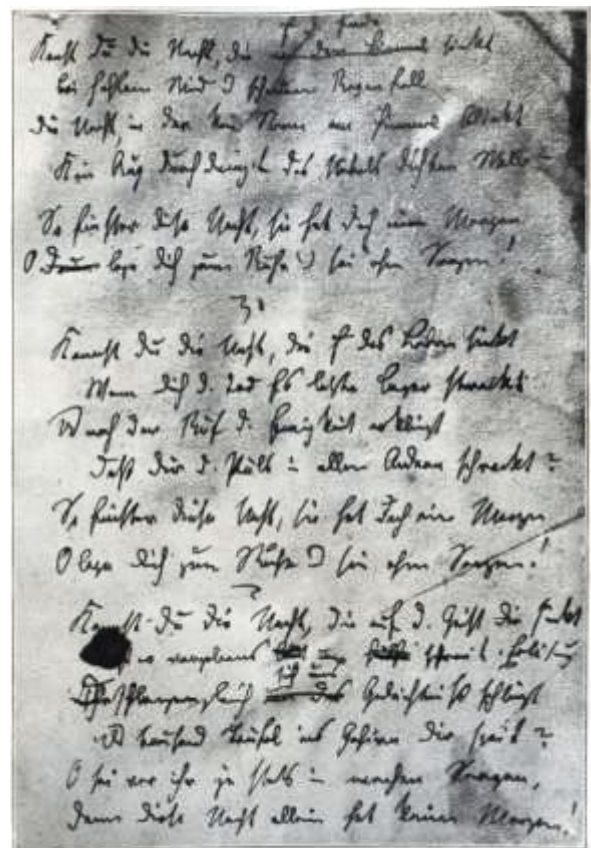 f. d. Erde
Kennst du die Nacht, die sinkt
bei hohlem Wind & Regenfall
Die Nacht, in der kein Stern am Himmel blinkt
Kein Aug durchdringt des Nebels dichten Wall?
So finster diese Nacht, sie hat doch einen Morgen
O lege dich zur Ruhe & sei ohne Sorgen!
Kennst du die Nacht, die f das Leben sinkt
Wenn dich d. Tod fs letzte Lager streckt
& nah der Ruf d. Ewigkeit erklingt
Daß dir d. Puls in allen Adern schreckt?
So finster diese Nacht, sie hat doch einen Morgen
O lege dich zur Ruhe & sei ohne Sorgen!
Kennst du die Nacht, die auf d. Geist dir sinkt
vergebens schreit Erlösung
sich ums
schlangengleich Gedächtniß schlingt
& tausend Teufel ins Gehirn dir speit?
O sei vor ihr ja stets in wachen Sorgen,
Denn diese Nacht allein hat keinen Morgen!